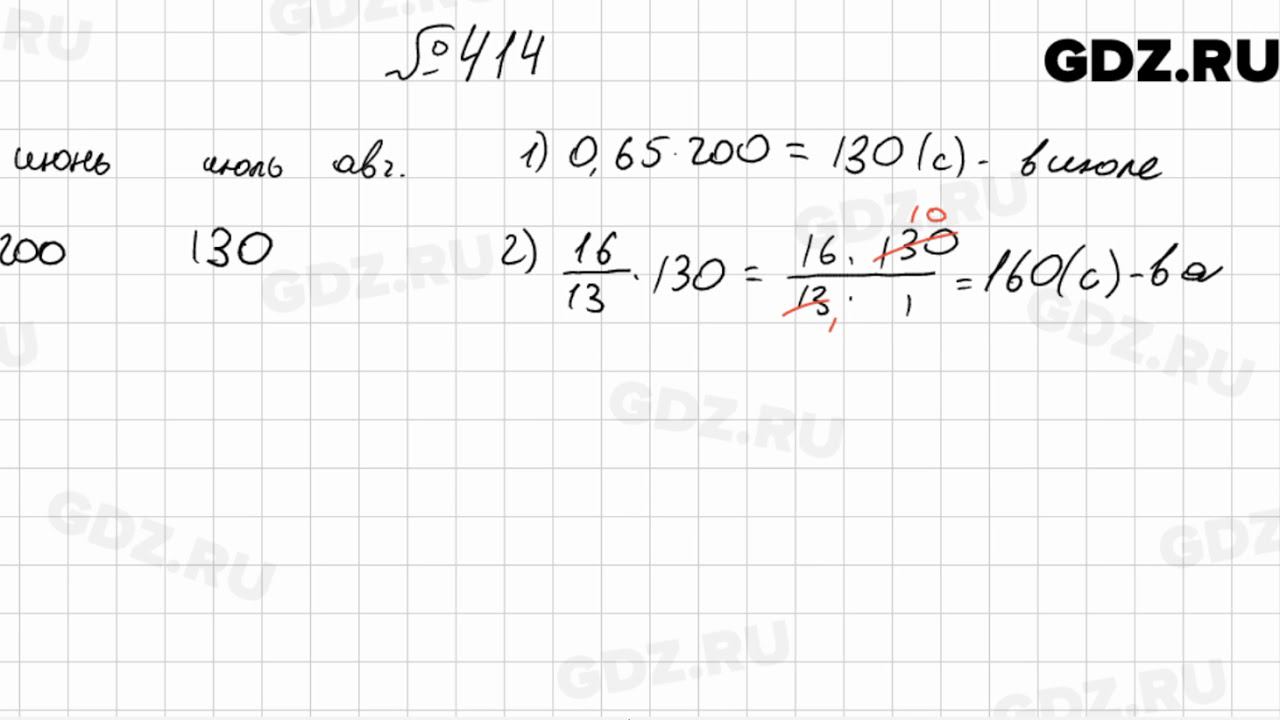 №414
GDZ.RU
июнь июль авг.
1) 0,65·200 = 130 (с) - в июле
200 130
2) 16/13 · 130 = 16·130/13·1 = 160(с) - в а
10
1
GDZ.RU
GDZ.RU
GDZ.RU
GDZ.RU
GDZ.RU
GDZ.RU
GDZ.RU
GDZ.RU
GDZ.RU